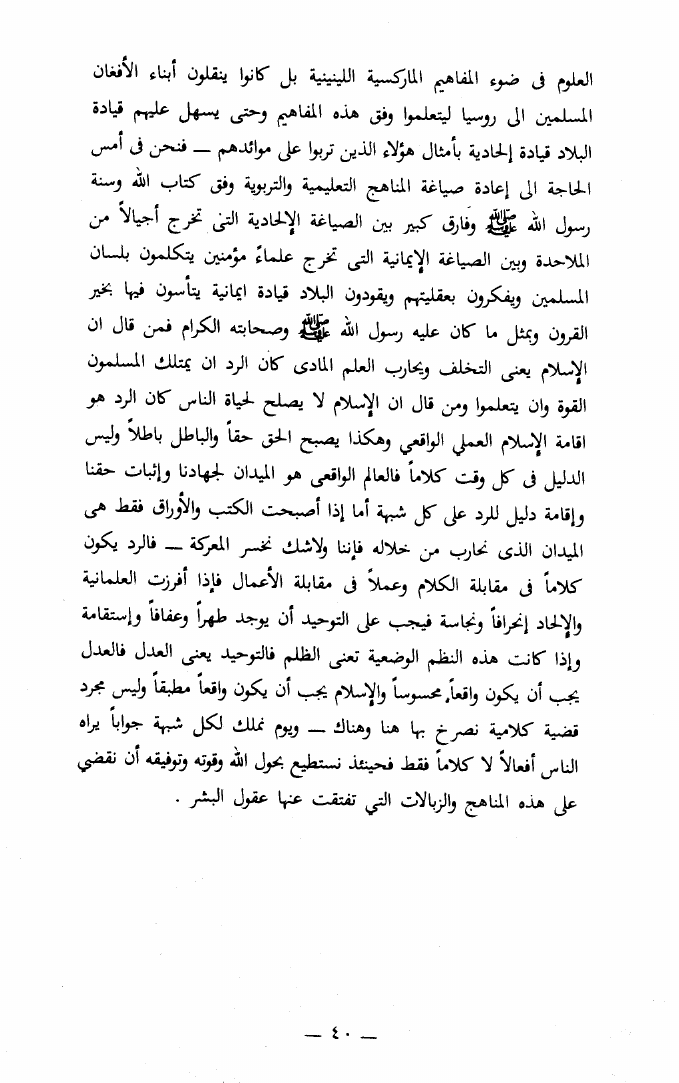 العلوم فى ضوء المفاهيم الماركسية اللينينية بل كانوا ينقلون أبناء الأفغان
المسلمين الى روسيا ليتعلموا وفق هذه المفاهيم وحتى يسهل عليهم قيادة
البلاد قيادة إلحادية بأمثال هؤلاء الذين تربوا على موائدهم — فنحن فى أمس
الحاجة الى إعادة صياغة المناهج التعليمية والتربوية وفق كتاب الله وسنة
رسول الله ﷺ وفارق كبير بين الصياغة الإلحادية التى تخرج أجيالاً من
الملاحدة وبين الصياغة الإيمانية التى تخرج علماءً مؤمنين يتكلمون بلسان
المسلمين ويفكرون بعقليتهم ويقودون البلاد قيادة ايمانية يتأسون فيها بخير
القرون وبمثل ما كان عليه رسول الله ﷺ وصحابته الكرام فمن قال ان
الإسلام يعنى التخلف ويحارب العلم المادى كان الرد ان يمتلك المسلمون
القوة وان يتعلموا ومن قال ان الإسلام لا يصلح لحياة الناس كان الرد هو
اقامة الإسلام العملي الواقعي وهكذا يصبح الحق حقاً والباطل باطلاً وليس
الدليل فى كل وقت كلاماً فالعالم الواقعى هو الميدان لجهادنا وإثبات حقنا
وإقامة دليل للرد على كل شبهة أما إذا أصبحت الكتب والأوراق فقط هى
الميدان الذى نحارب من خلاله فإننا ولاشك نخسر المعركة — فالرد يكون
كلاماً فى مقابلة الكلام وعملاً فى مقابلة الأعمال فإذا أفرزت العلمانية
والإلحاد إنحرافاً ونجاسة فيجب على التوحيد أن يوجد طهراً وعفافاً وإستقامة
وإذا كانت هذه النظم الوضعية تعنى الظلم فالتوحيد يعنى العدل فالعدل
يجب أن يكون واقعاً محسوساً والإسلام يجب أن يكون واقعاً مطبقاً وليس مجرد
قضية كلامية نصرخ بها هنا وهناك — ويوم نملك لكل شبهة جواباً يراه
الناس أفعالاً لا كلاماً فقط فحينئذ نستطيع بحول الله وقوته وتوفيقه أن نقضي
على هذه المناهج والزبالات التي تفتقت عنها عقول البشر .
— ٤٠ —